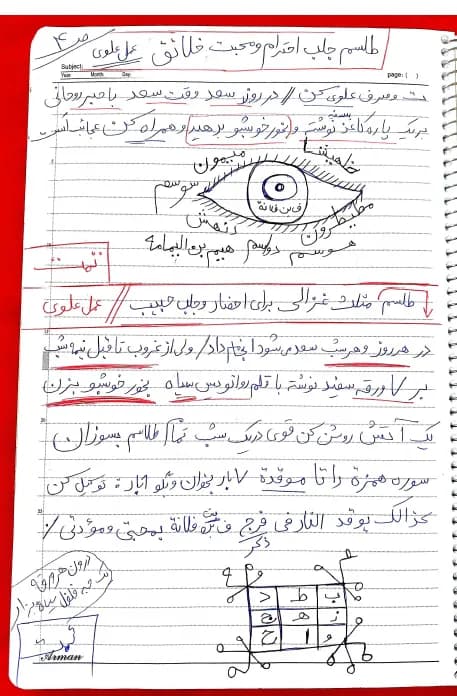 ص ۴
طلسم جلب احترام و محبت خلائق عمل علوی
Subject:
Year Month Day
page: ( )
ت و صرف علوی کن // در روز سعد وقت سعد با حبر روحانی
بر یک پاره کاغذ نوشته و بخور خوشبو بدهید و همراه کن عجائب است
میمون
سوسم
ف بن فلانة
مطیطرون
هوسم دوسم هیم بره الیمامه
تمت
طلسم مثلث غزالی برای احضار و جلب حبیب // عمل علوی
در هر روز و هر شب سعد می شود انجام داد / ولی از غروب تا قبل نیمه شب
بر ۷ ورقه سفید نوشته با قلم روانویس سیاه بخور خوشبو بزن
یک آتش روشن کن قوی در یک شب تمام طلاسم بسوزان
سوره همزة را تا موقدة ۷ بار بخوان و بگو ۷ بار توکل کن
کذالک یوقد النار فی فرج ف بنت فلانة بمحبتی و مودتی //
ذکر
درون هر ورقه
یک حبه فلفل سیاه بزار
د ط ب
ج ه ز
ح ا و
تمت
Arman